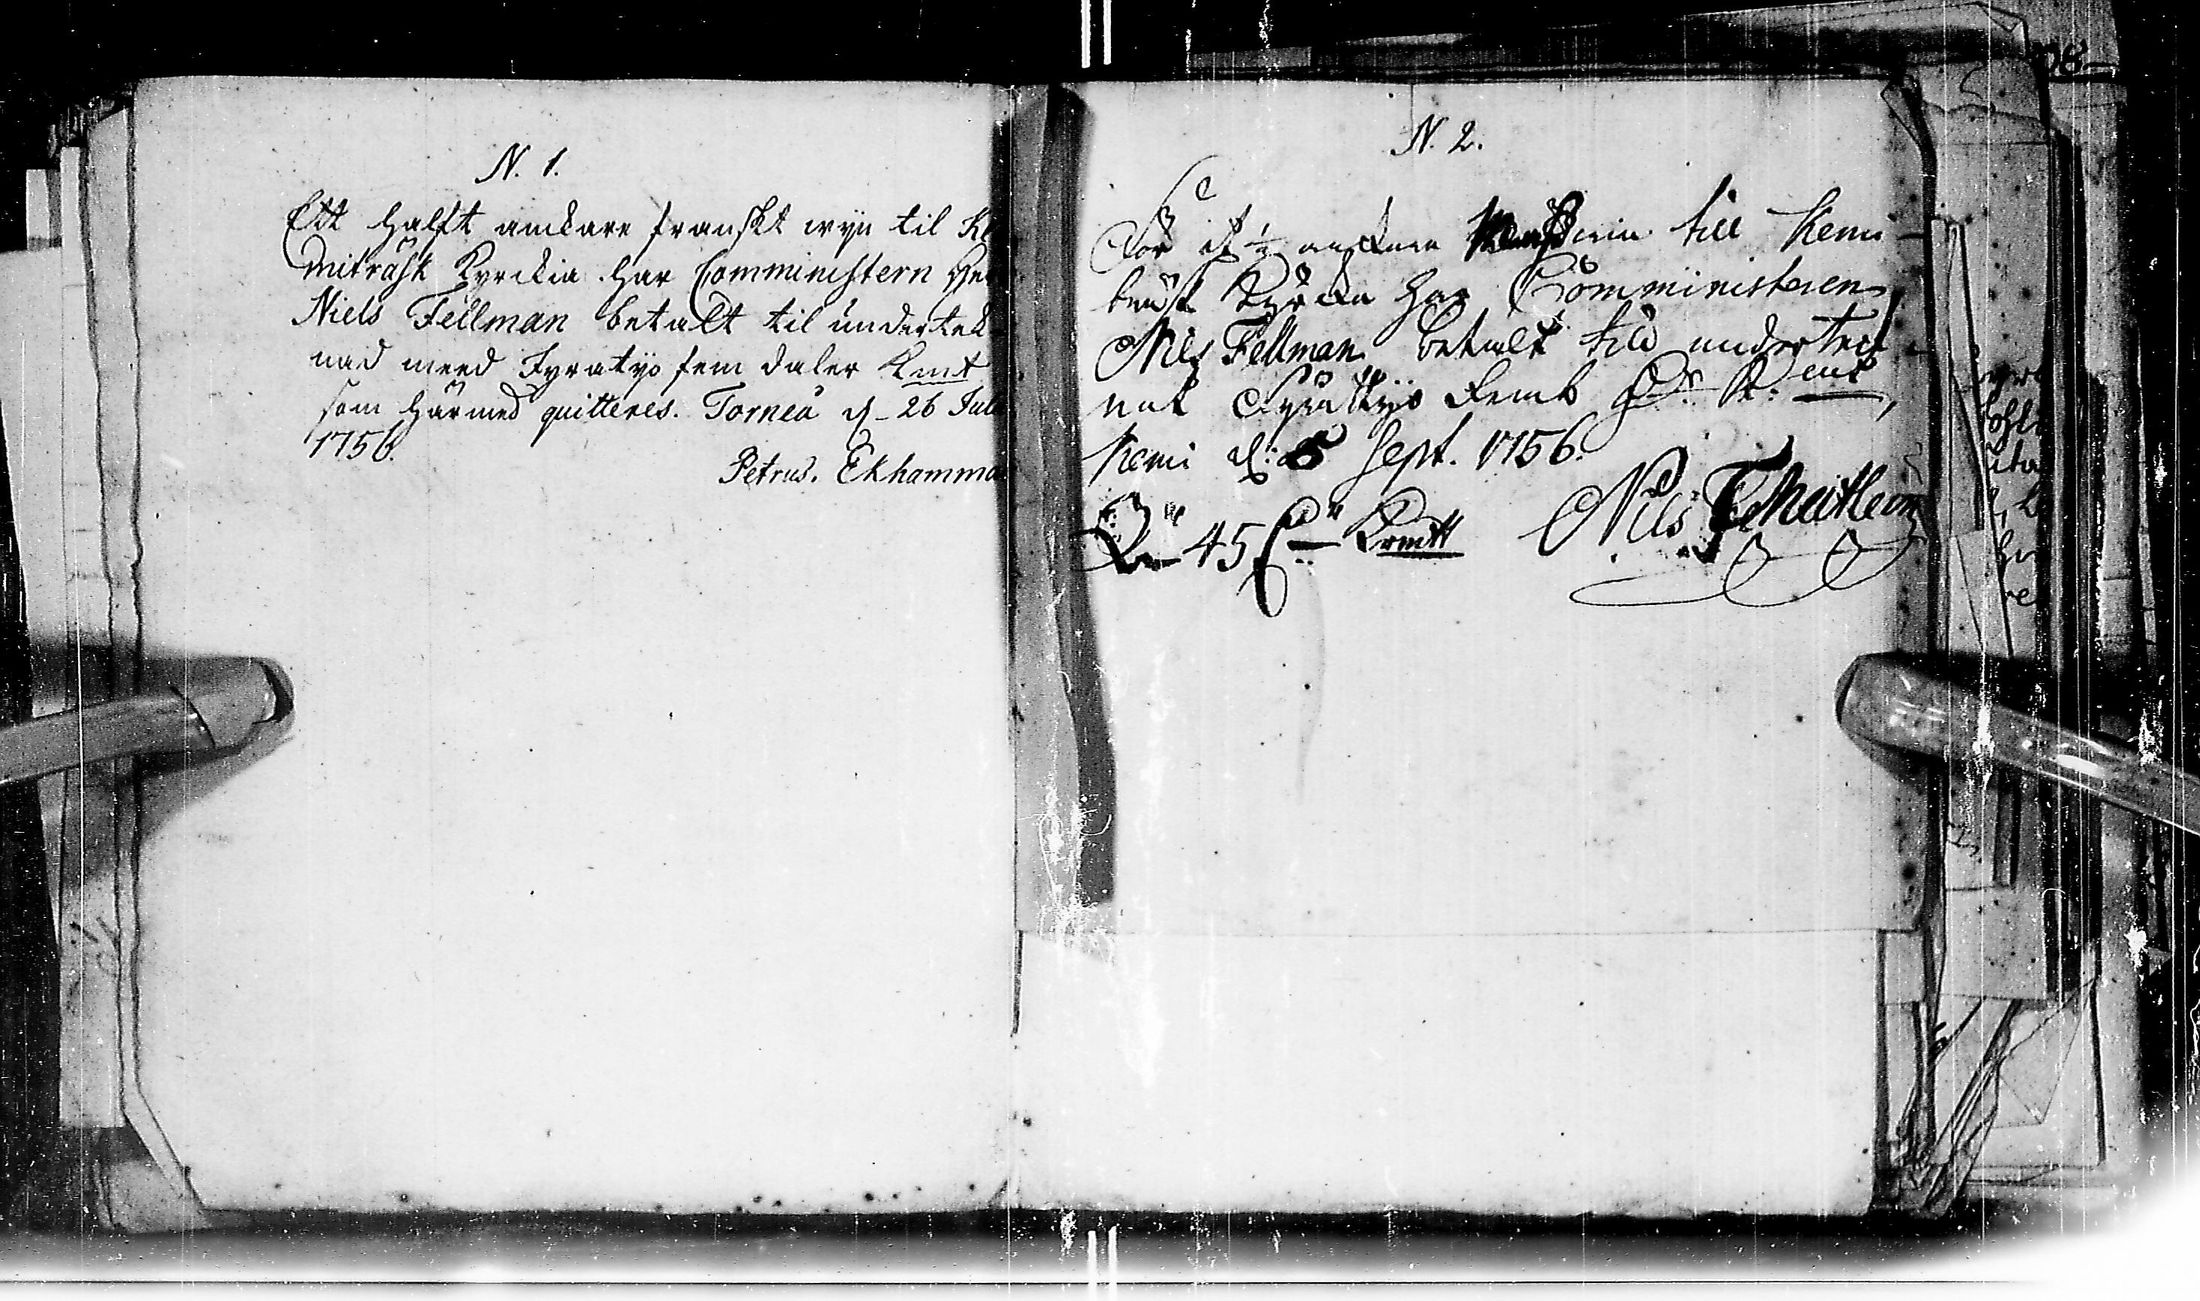 N. 1.
Ett halft anckare franskt wyn til Ke
miträsk Kyrckia har Comministern Her
Niels Fellman betalt til underteck
nad meed Fyratyo fem daler Kmt
som härmed quitteres. Torneå d. 26 Julii
1756.
Petrus. Ekhamma
N. 2.
För et ½ anckare win till Kemi
träsk Kyrcka har Comministeren
Nils Fellman betalt till underteck
nat Fyratyo Femb Dr K: mt
Kemi d: 5 Sept. 1756.
45 Krmtt Nils